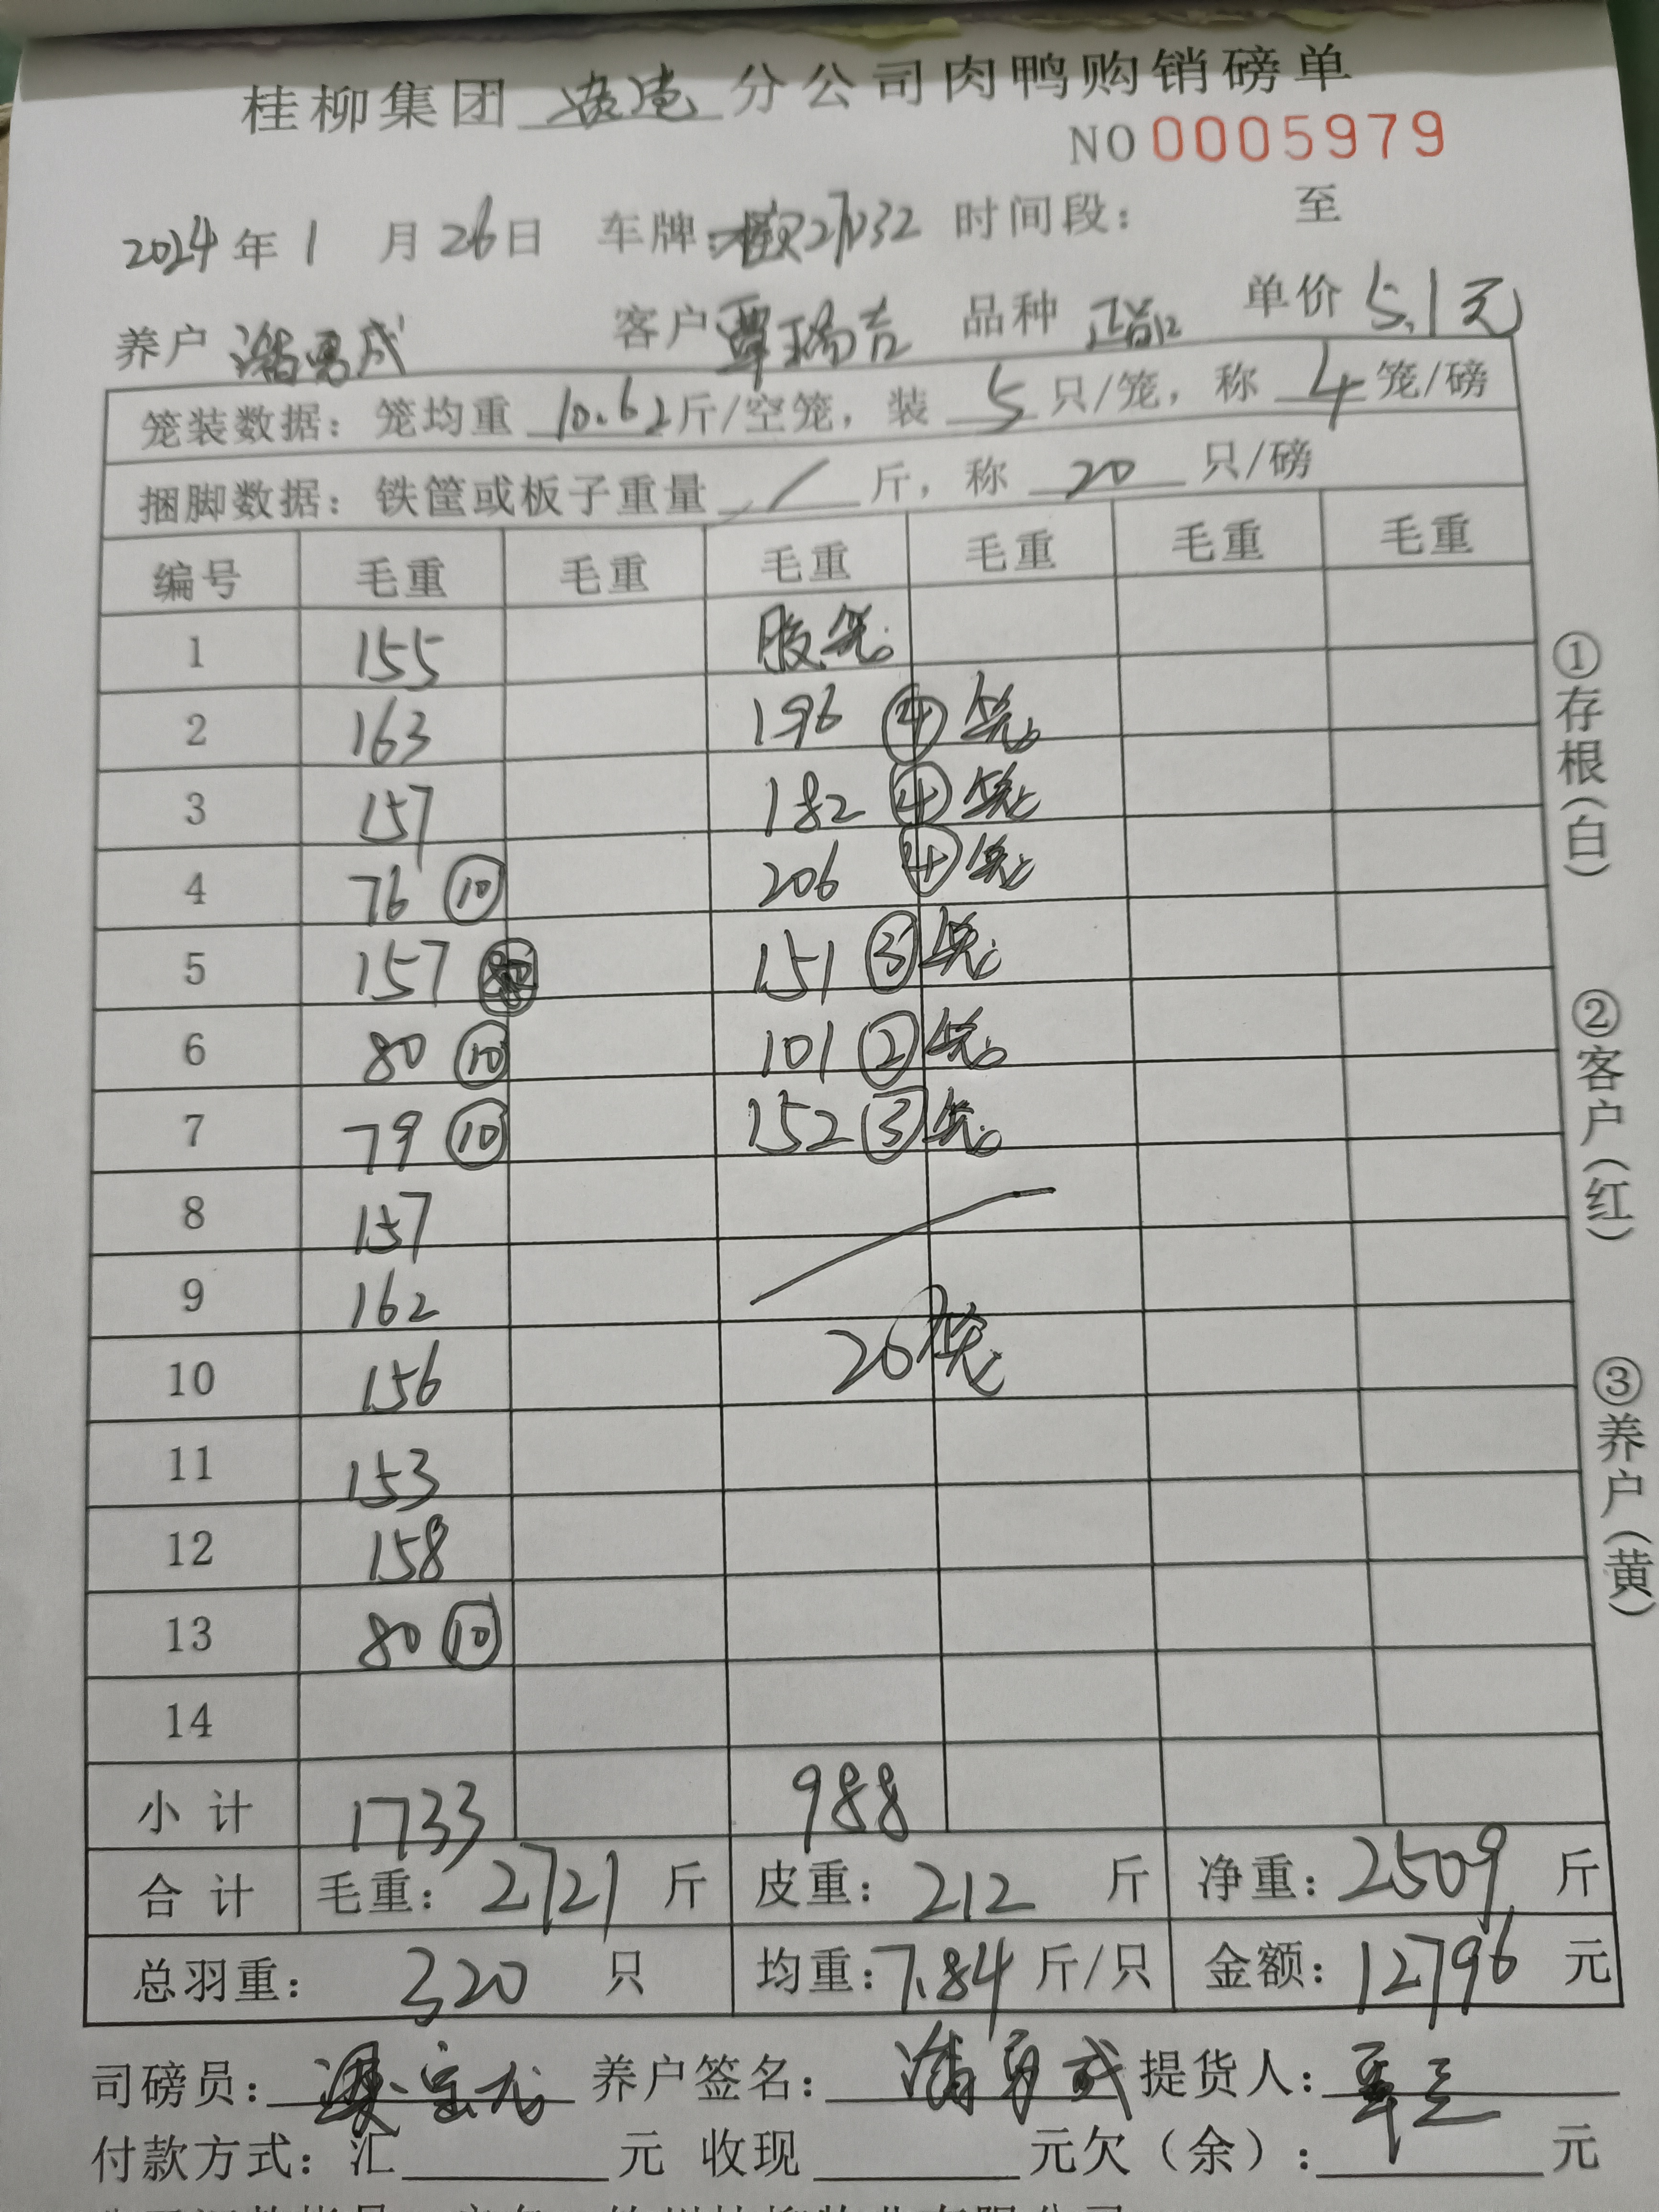 桂柳集团 分公司肉鸭购销磅单
NO 0005979
2024年 1 月 26日 车牌: 时间段: 至
养户 潘勇成 客户 覃瑞吉 品种 单价 5.1元
笼装数据: 笼均重 10.62 斤/空笼, 装 5 只/笼, 称 4 笼/磅
捆脚数据: 铁筐或板子重量 / 斤, 称 20 只/磅
编号 毛重 毛重 毛重 毛重 毛重 毛重
1 155
2 163 196 ④ 笼
3 157 182 ④ 笼
4 76 ⑩ 206 ④ 笼
5 157 151 ③ 笼
6 80 ⑩ 101 ② 笼
7 79 ⑩ 152 ③ 笼
8 157
9 162
10 156 20笼
11 153
12 158
13 80 ⑩
14
小计 1733 988
合计 毛重: 2721 斤 皮重: 212 斤 净重: 2509 斤
总羽重: 320 只 均重: 7.84 斤/只 金额: 12796 元
司磅员: 养户签名: 潘勇成 提货人:
付款方式: 汇 元 收现 元欠(余): 元
①存根(白)
②客户(红)
③养户(黄)